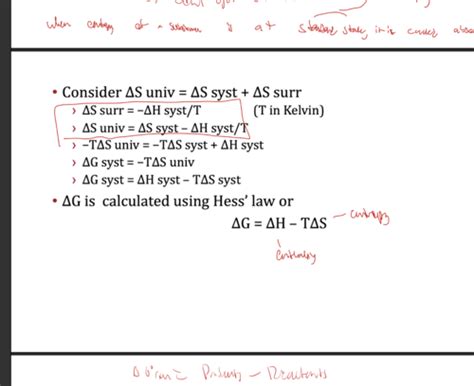 when entropy of a substance is at standard state, it is called abso
• Consider ΔS univ = ΔS syst + ΔS surr
› ΔS surr = –ΔH syst/T (T in Kelvin)
› ΔS univ = ΔS syst – ΔH syst/T
› –TΔS univ = –TΔS syst + ΔH syst
› ΔG syst = –TΔS univ
› ΔG syst = ΔH syst – TΔS syst
• ΔG is calculated using Hess’ law or
ΔG = ΔH – TΔS – entropy
enthalpy
ΔG°rxn = Products – Reactants